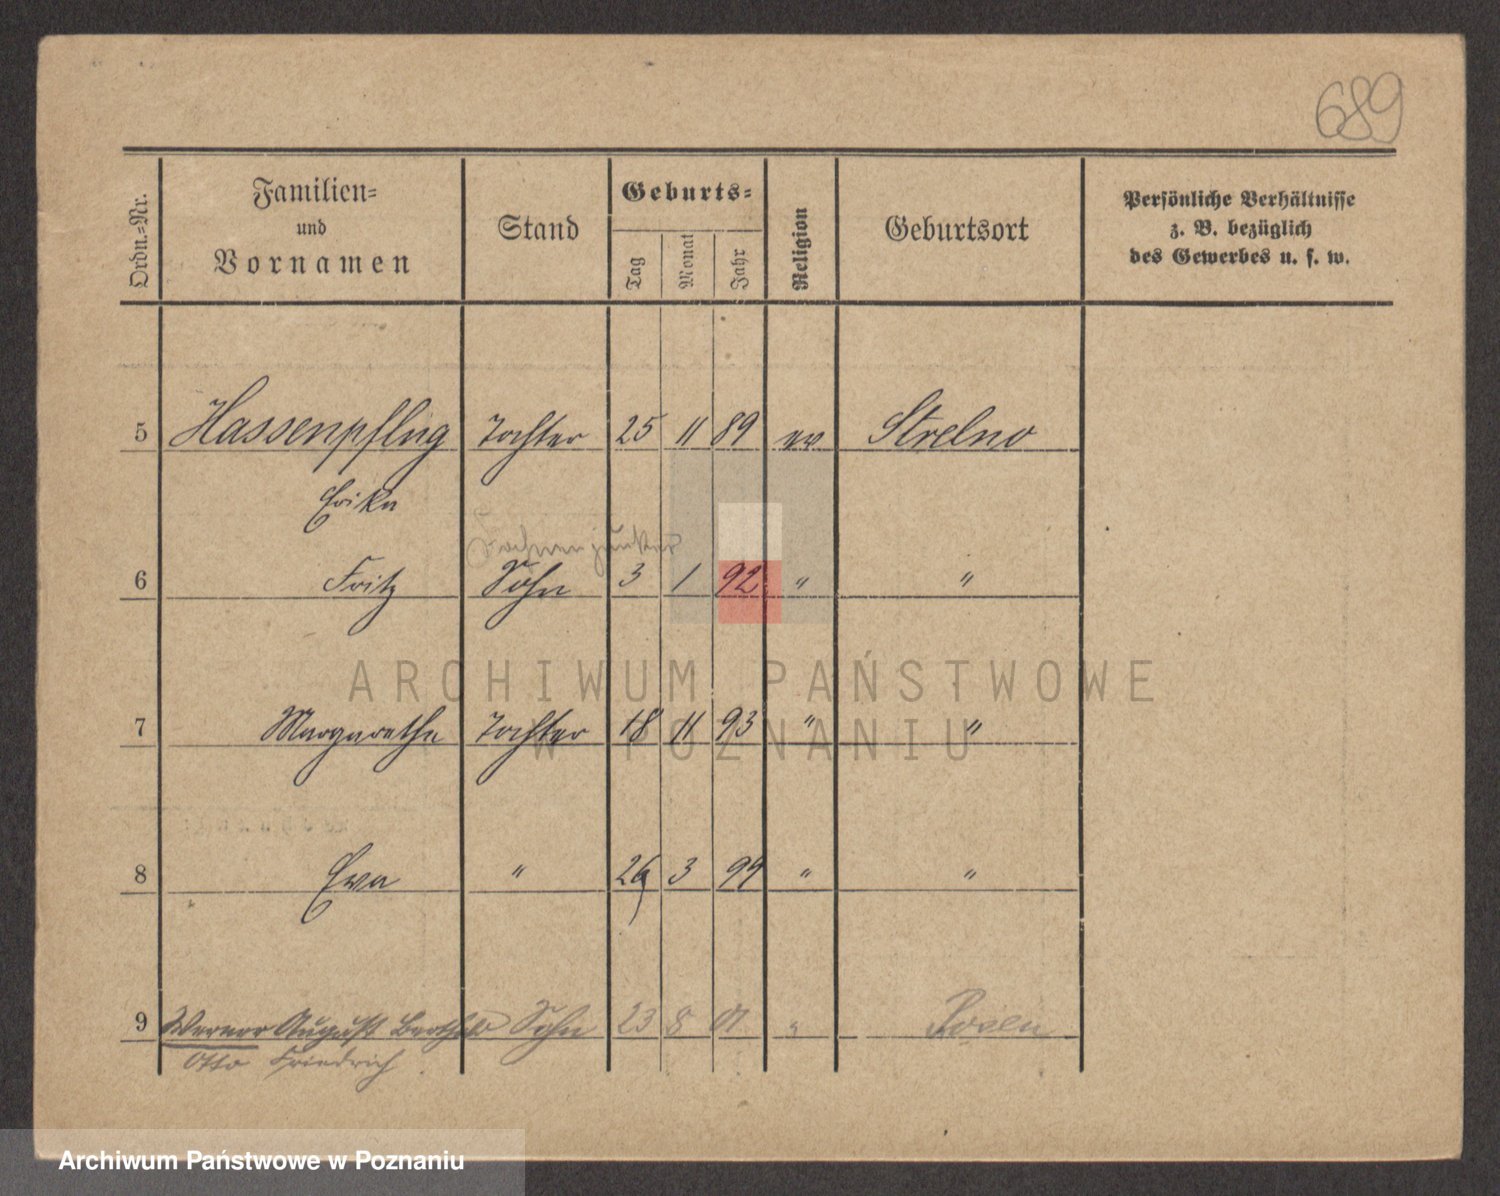 689
Ordn.-Nr.
Familien-
und
Vornamen
Stand
Geburts-
Tag
Monat
Jahr
Religion
Geburtsort
Persönliche Verhältnisse
z. B. bezüglich
des Gewerbes u. s. w.
5 Hassenpflug Tochter 25 11 89 ev Strelno
Erika
Fahnenjunker
6 Fritz Sohn 3 1 92 " "
ARCHIWUM PAŃSTWOWE
7 Margarethe Tochter 18 11 93 " "
W POZNANIU
8 Eva " 26 3 99 " "
9 Werner August Berthold Sohn 23 8 01 " Posen
Otto Friedrich
Archiwum Państwowe w Poznaniu